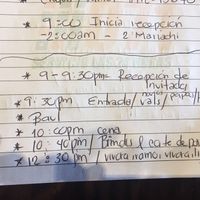 * 9:00 Inicia recepción
-2:00am - 2 Mariachi
* 9-9:30pm- Recepción de
Invitados
* 9:30pm Entrada/ vals/ papas/
novios
*
* 10:00pm cena
* 10:40pm / Brindis/ corte de
* 12:30pm / vivora